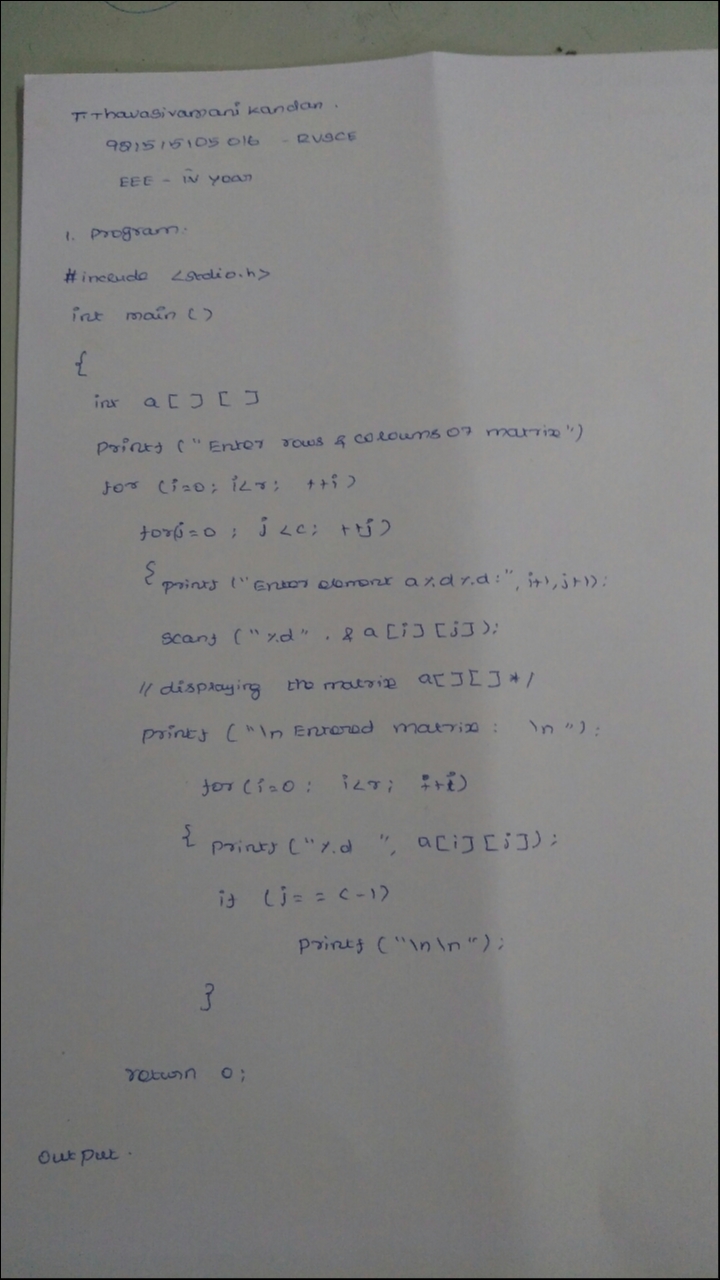 T. Thavasivamani Kandan.
981515105016 - RVSCE
EEE - IV year
1. Program:
#include <stdio.h>
int main ()
{
int a [ ] [ ]
printf ("Enter rows & coloums of matrix")
for (i=0; i<r; ++i)
for(j=0 ; j <c; ++j)
{ printf ("Enter element a%d%d:", i+1,j+1);
scanf ("%d" , &a[i][j]);
// displaying the matrix a[][] */
printf ("\n Entered matrix : \n ");
for (i=0 ; i<r; ++i)
{ printf ("%d ", a[i][j]);
if (j= = c-1)
printf ("\n\n");
}
return 0;
Output.